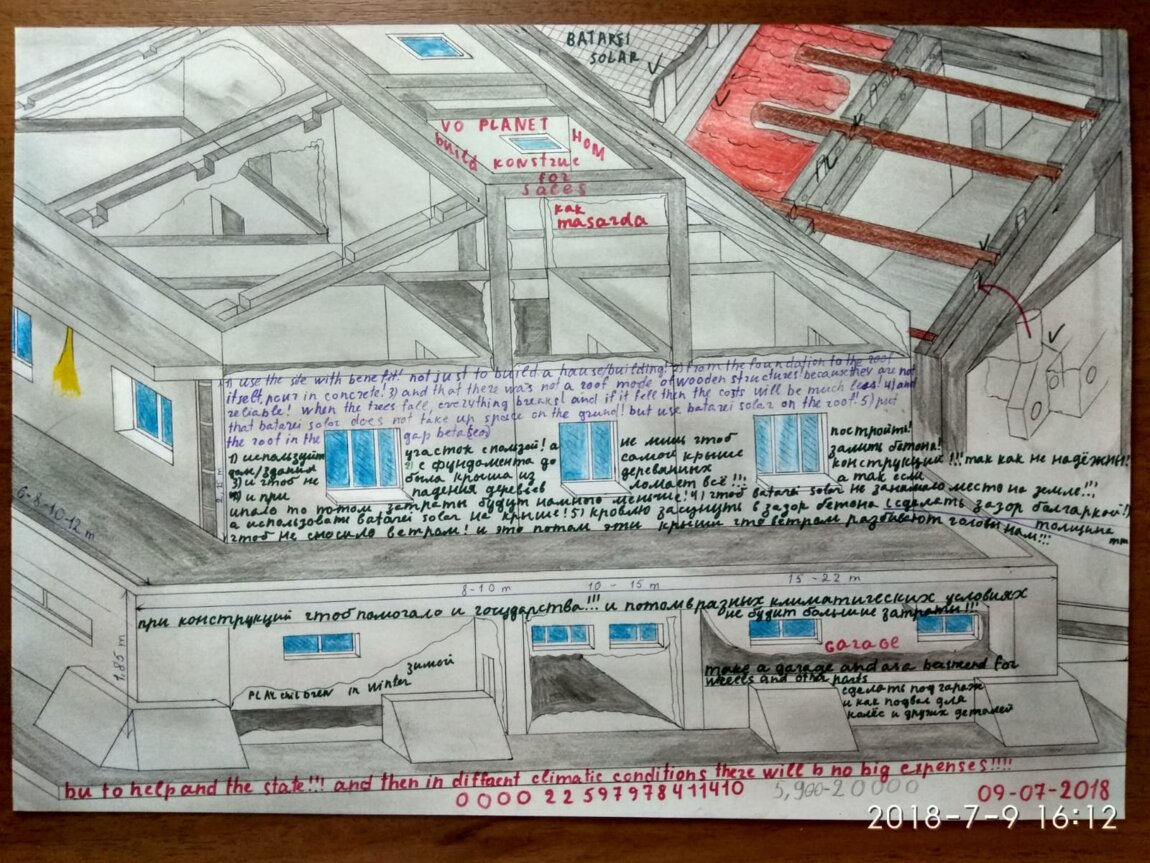 BATAREI
SOLAR
VO PLANET
build HOM
KONSTRUE
for
sales
как
masarda
1) use the site with benefit! not just to build a hause/building! 2) from the foundation to the roof
itself, pour in concrete! 3) and that there was not a roof mode of wooden structures! because they are not
reliable! when the trees fall, everything breaks! and if it fell then the costs will be much less! 4) and
that batarei solar does not take up space on the ground! but use batarei solar on the roof! 5) put
the roof in the gap
1) используйте участок с пользой! а не лиш чтоб постройть!
дом/здания 2) с фундомента до самой крыше залить бетона!
3) и чтоб не была крыша из деревянных конструкций!!! так как не надёжны!
и при падения деревьев ломает всё!!! а так если
упало то потом затраты будут намного меньше! 4) чтоб batarei solar не занимало место на земле!!!
а использовать batarei solar на крыше! 5) кровлю засунуть в зазор бетона сделать зазор болгаркой!)
чтоб не сносило ветром! и это потом эти крыши что ветрам разбивают головы нам!!! толщина
mm
6-8-10-12 m
8-10 m 10 - 15 m 15-22 m
при конструкций чтоб помогало и государства!!! и потом в разных климатических условиях
не будит большие затраты!!!
1,85 m
garage
зимой
PLAY children in winter
make a garage and as a basmend for
wheels and other parts
сделать под гараж
и как подвал для
колёс и других деталей
bu to help and the state!!! and then in diffaent climatic conditions there will b no big expenses!!!!
0000 22597978411410 5,900-20000 09-07-2018
2018-7-9 16:12